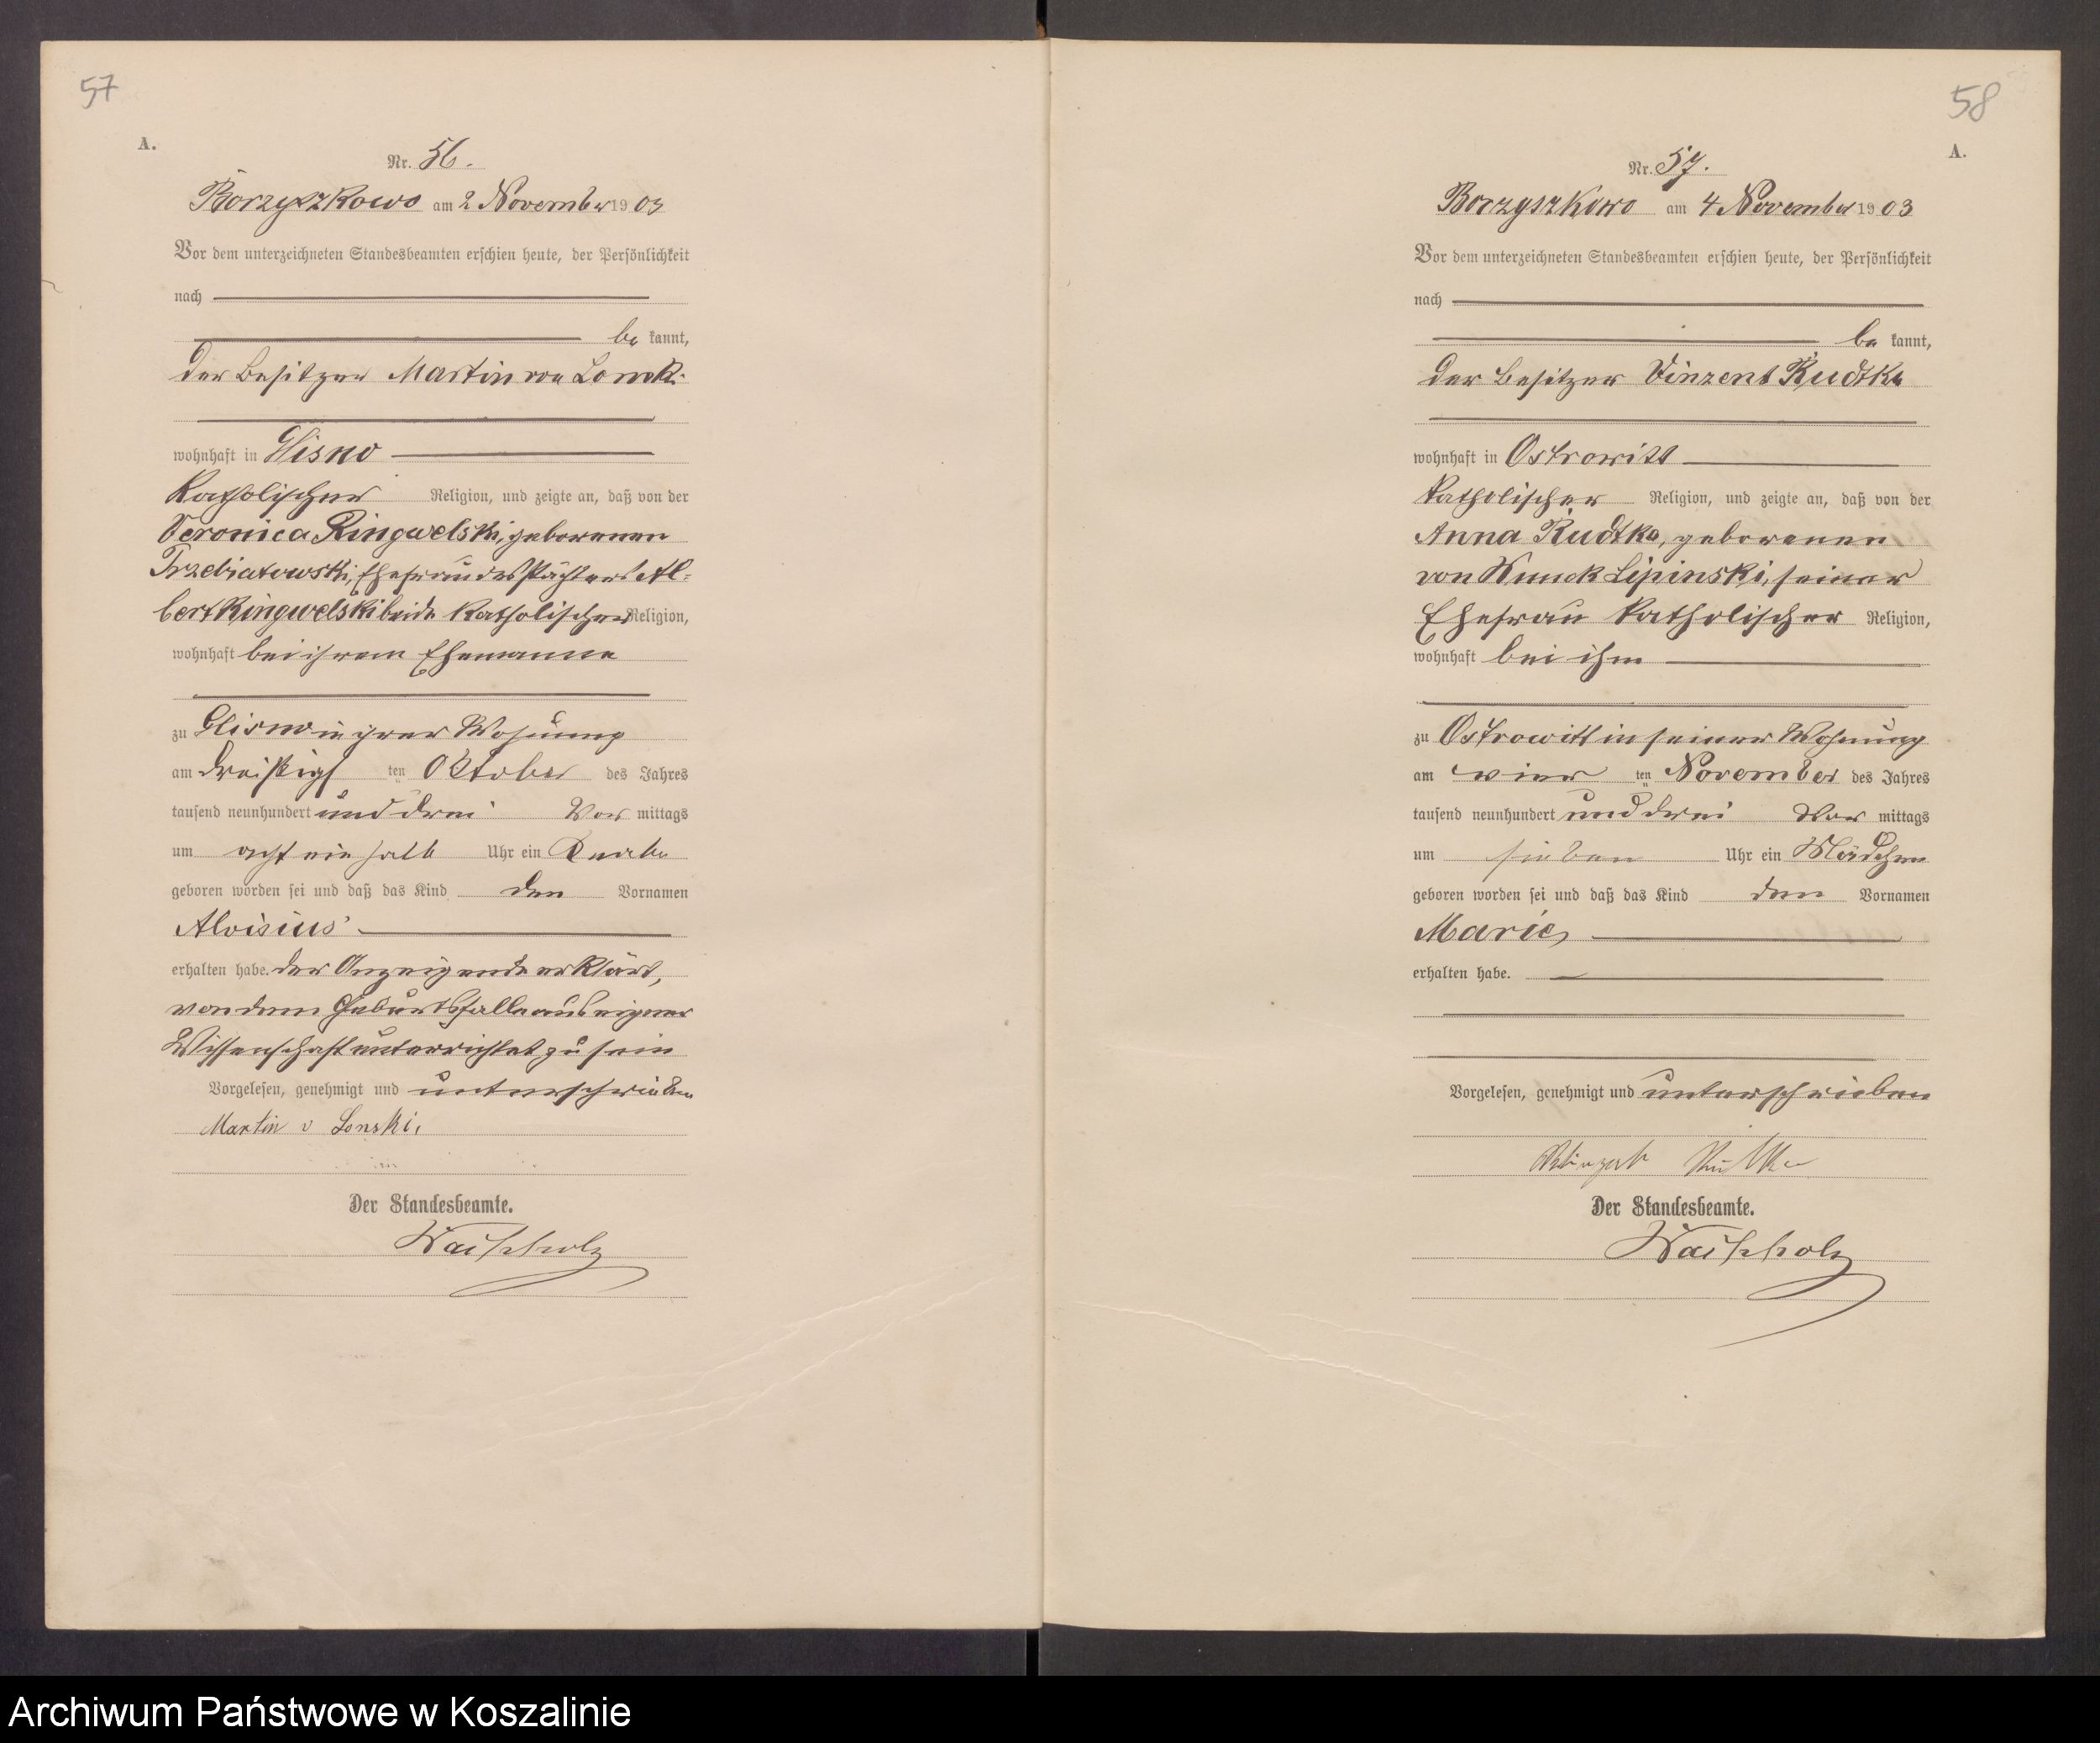 57
A.
Nr. 56.
Borzyszkowo am 2 November 1903
Vor dem unterzeichneten Standesbeamten erschien heute, der Persönlichkeit
nach
be kannt,
der Besitzer Martin von Lonski
wohnhaft in Glisno
katholischer Religion, und zeigte an, daß von der
Veronica Ringwelski, geborenen
Trzebiatowski, Ehefrau des Pächters Al-
bert Ringwelski beide katholischer Religion,
wohnhaft bei ihrem Ehemanne
zu Glisno in ihrer Wohnung
am dreißigs ten Oktober des Jahres
tausend neunhundert und drei Vor mittags
um acht ein halb Uhr ein Knabe
geboren worden sei und daß das Kind den Vornamen
Aloisius
erhalten habe. Der Anzeigende erklärt,
von dem Geburtsfalle aus eigener
Wissenschaft unterrichtet zu sein
Vorgelesen, genehmigt und unterschrieben
Martin v Lonski.
Der Standesbeamte.
58
A.
Nr. 57.
Borzyszkowo am 4 November 1903
Vor dem unterzeichneten Standesbeamten erschien heute, der Persönlichkeit
nach
be kannt,
der Besitzer Vinzent Rudtke
wohnhaft in Ostrowitt
katholischer Religion, und zeigte an, daß von der
Anna Rudtke, geborenen
von Wnuck Lipinski, seiner
Ehefrau katholischer Religion,
wohnhaft bei ihm
zu Ostrowitt in seiner Wohnung
am vier ten November des Jahres
tausend neunhundert und drei Vor mittags
um sieben Uhr ein Mädchen
geboren worden sei und daß das Kind den Vornamen
Marie
erhalten habe.
Vorgelesen, genehmigt und unterschrieben
Der Standesbeamte.
Archiwum Państwowe w Koszalinie